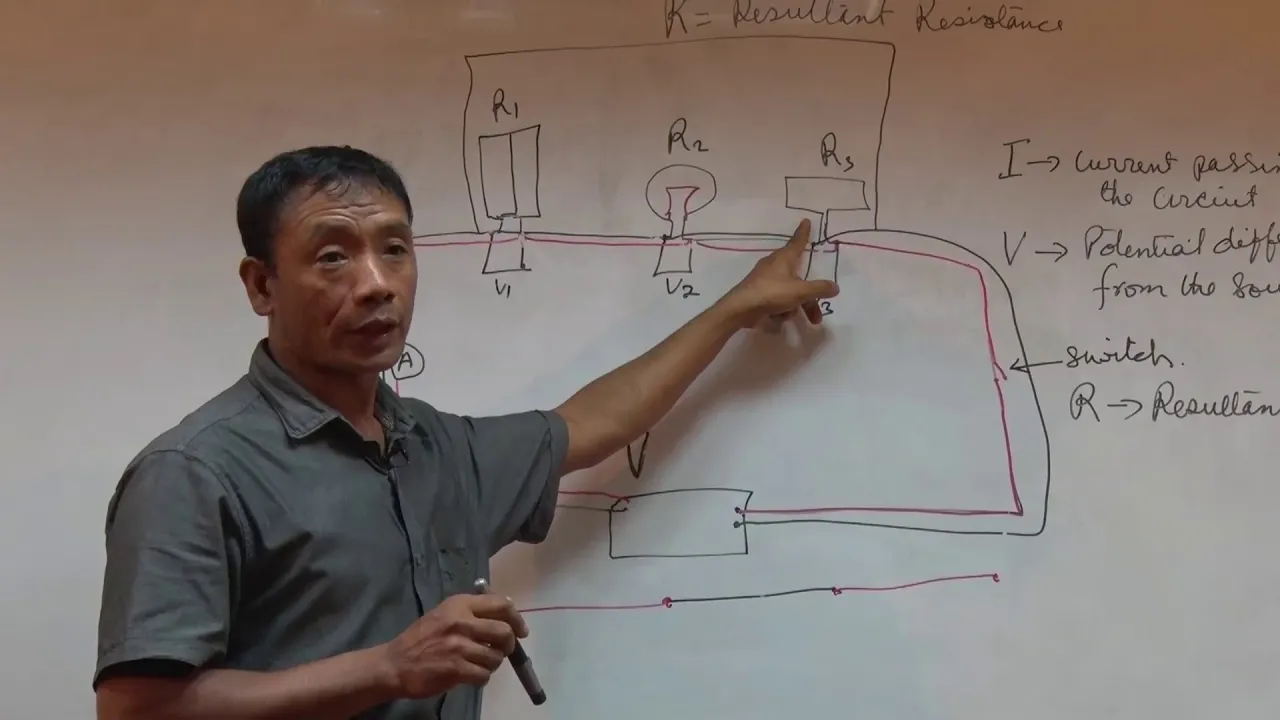 R = Resultant Resistance
R1
R2
R3
V1
V2
3
A
V
I → Current passi
the circuit
V → Potential diff
from the sou
switch.
R → Resultan